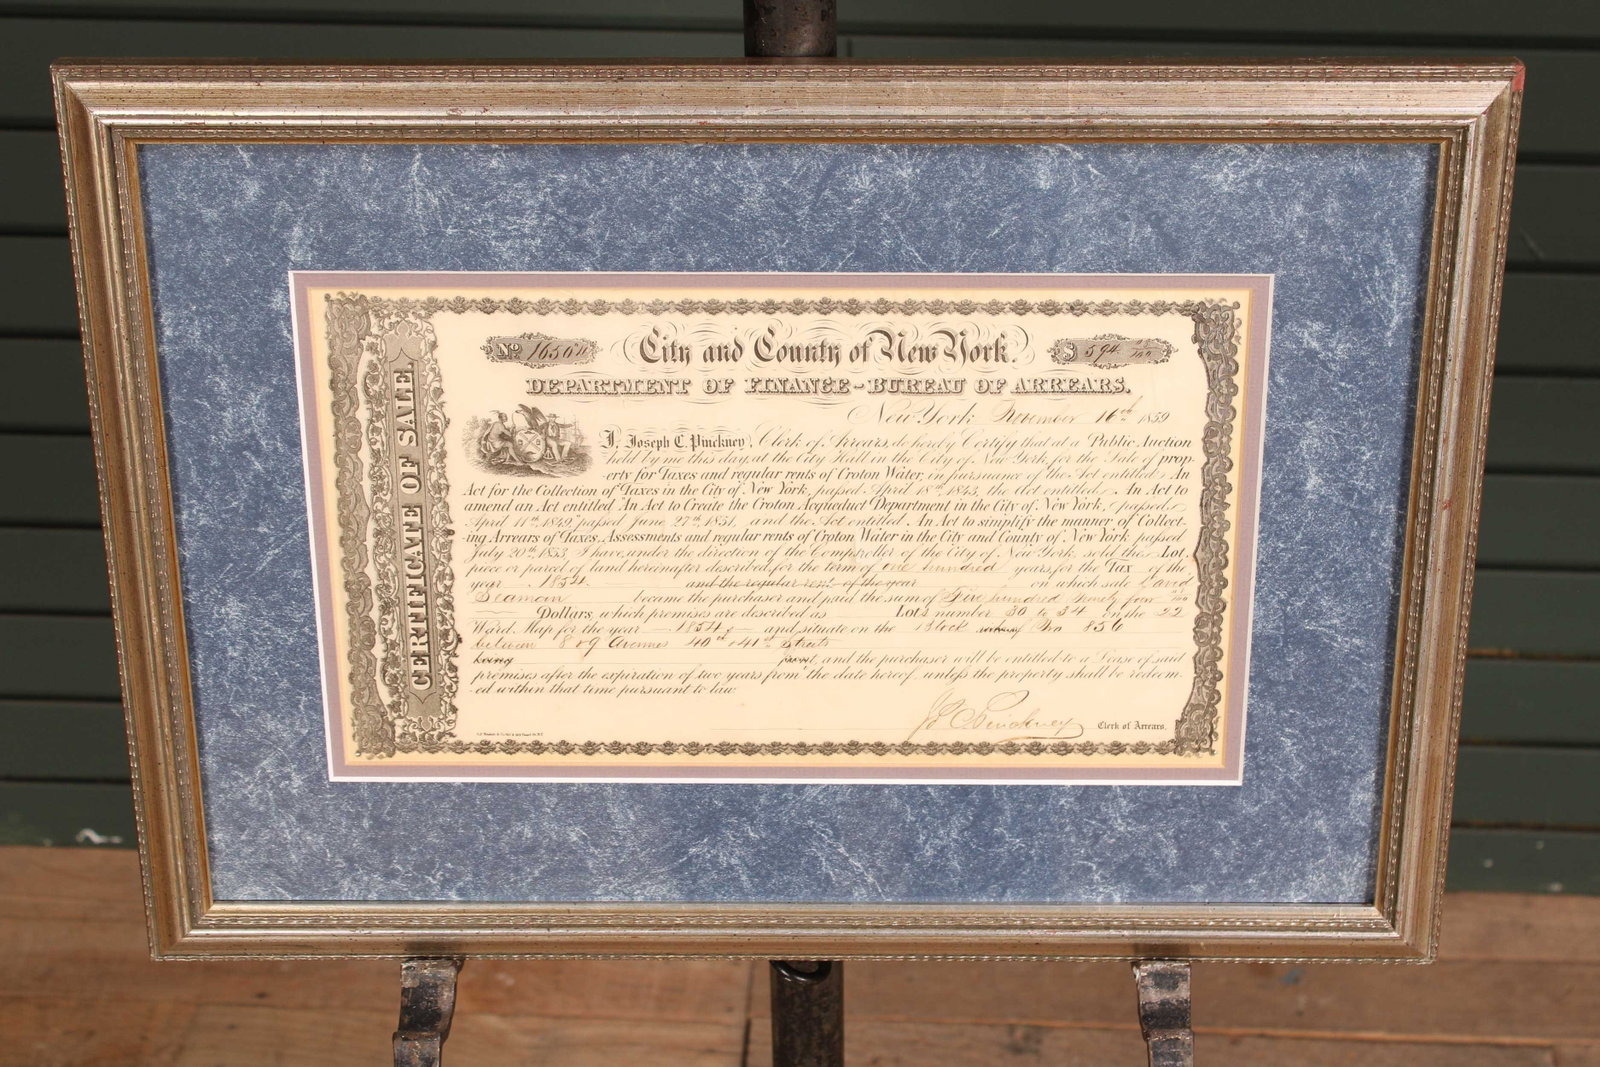 CERTIFICATE OF SALE.
No. City and County of New York. $ 594 25/100
DEPARTMENT OF FINANCE - BUREAU OF ARREARS.
New York November 16th 1859
I, Joseph C. Pinckney, Clerk of Arrears, do hereby Certify that at a Public Auction
held by me this day, at the City Hall in the City of New York, for the Sale of prop-
erty for Taxes and regular rents of Croton Water, in pursuance of the Act entitled, An
Act for the Collection of Taxes in the City of New York, passed April 18th 1843, the Act entitled, An Act to
amend an Act entitled "An Act to Create the Croton Acqueduct Department in the City of New York, passed
April 11th 1849," passed June 27th 1851, and the Act entitled An Act to simplify the manner of Collect-
ing Arrears of Taxes, Assessments and regular rents of Croton Water in the City and County of New York passed
July 20th 1853, I have, under the direction of the Comptroller of the City of New York, sold the Lot,
piece or parcel of land hereinafter described for the term of one hundred years for the Tax of the
year 1854 and the regular rent of the year on which sale David
Seaman became the purchaser and paid the sum of Five hundred ninety four 25/100
Dollars, which premises are described as Lots number 30 to 34 on the 22
Ward Map for the year 1854 and situate on the Block No 856
between 8 & 9 Avenues 40th & 41st Streets
being front, and the purchaser will be entitled to a Lease of said
premises after the expiration of two years from the date hereof, unless the property shall be redeem-
ed within that time pursuant to law
J C Pinckney Clerk of Arrears.